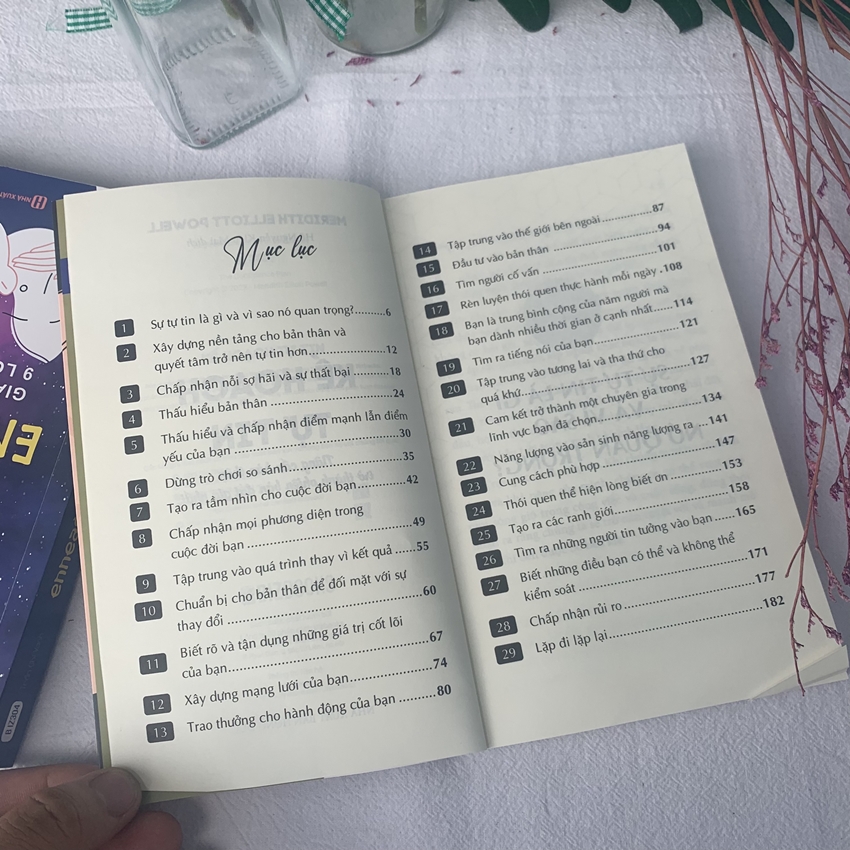 Mục lục
1 Sự tự tin là gì và vì sao nó quan trọng?..........6
2 Xây dựng nền tảng cho bản thân và
quyết tâm trở nên tự tin hơn......................12
3 Chấp nhận nỗi sợ hãi và sự thất bại ..........18
4 Thấu hiểu bản thân ....................................24
5 Thấu hiểu và chấp nhận điểm mạnh lẫn điểm
yếu của bạn ...............................................30
6 Dừng trò chơi so sánh................................35
7 Tạo ra tầm nhìn cho cuộc đời bạn .............42
8 Chấp nhận mọi phương diện trong
cuộc đời bạn ..............................................49
9 Tập trung vào quá trình thay vì kết quả ......55
10 Chuẩn bị cho bản thân để đối mặt với sự
thay đổi ......................................................60
11 Biết rõ và tận dụng những giá trị cốt lõi
của bạn.......................................................67
12 Xây dựng mạng lưới của bạn.....................74
13 Trao thưởng cho hành động của bạn .........80
14 Tập trung vào thế giới bên ngoài...............87
15 Đầu tư vào bản thân ..................................94
16 Tìm người cố vấn .....................................101
17 Rèn luyện thói quen thực hành mỗi ngày .108
18 Bạn là trung bình cộng của năm người mà
bạn dành nhiều thời gian ở cạnh nhất......114
19 Tìm ra tiếng nói của bạn...........................121
20 Tập trung vào tương lai và tha thứ cho
quá khứ.....................................................127
21 Cam kết trở thành một chuyên gia trong
lĩnh vực bạn đã chọn.................................134
22 Năng lượng vào sản sinh năng lượng ra ....141
23 Cung cách phù hợp ..................................147
24 Thói quen thể hiện lòng biết ơn ...............153
25 Tạo ra các ranh giới...................................158
26 Tìm ra những người tin tưởng vào bạn ......165
27 Biết những điều bạn có thể và không thể
kiểm soát ..................................................171
28 Chấp nhận rủi ro.......................................177
29 Lặp đi lặp lại.............................................182
B IZ304